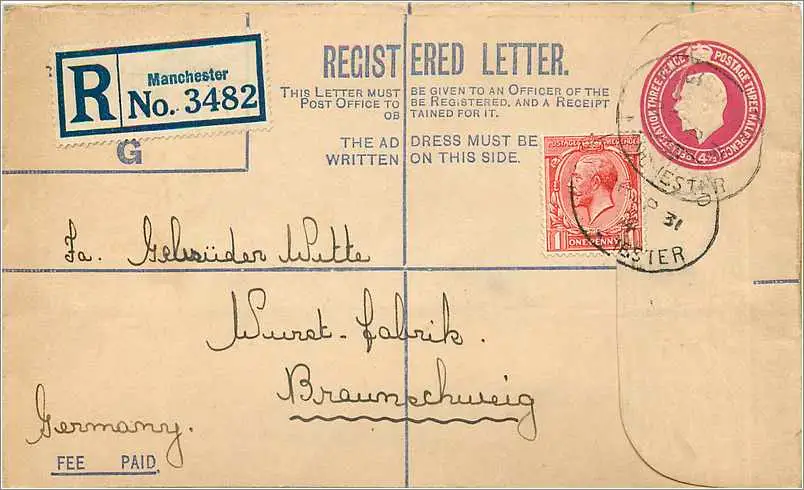 R Manchester
No. 3482
G
REGISTERED LETTER.
THIS LETTER MUST BE GIVEN TO AN OFFICER OF THE
POST OFFICE TO BE REGISTERED, AND A RECEIPT
OBTAINED FOR IT.
THE ADDRESS MUST BE
WRITTEN ON THIS SIDE.
POSTAGE THREE HALF-PENCE
REGISTRATION THREE PENCE
(4½D)
POSTAGE REVENUE
1 ONE PENNY 1
31
Fa. Gebrüder Witte
Wurst-fabrik.
Braunschweig
Germany.
FEE PAID.